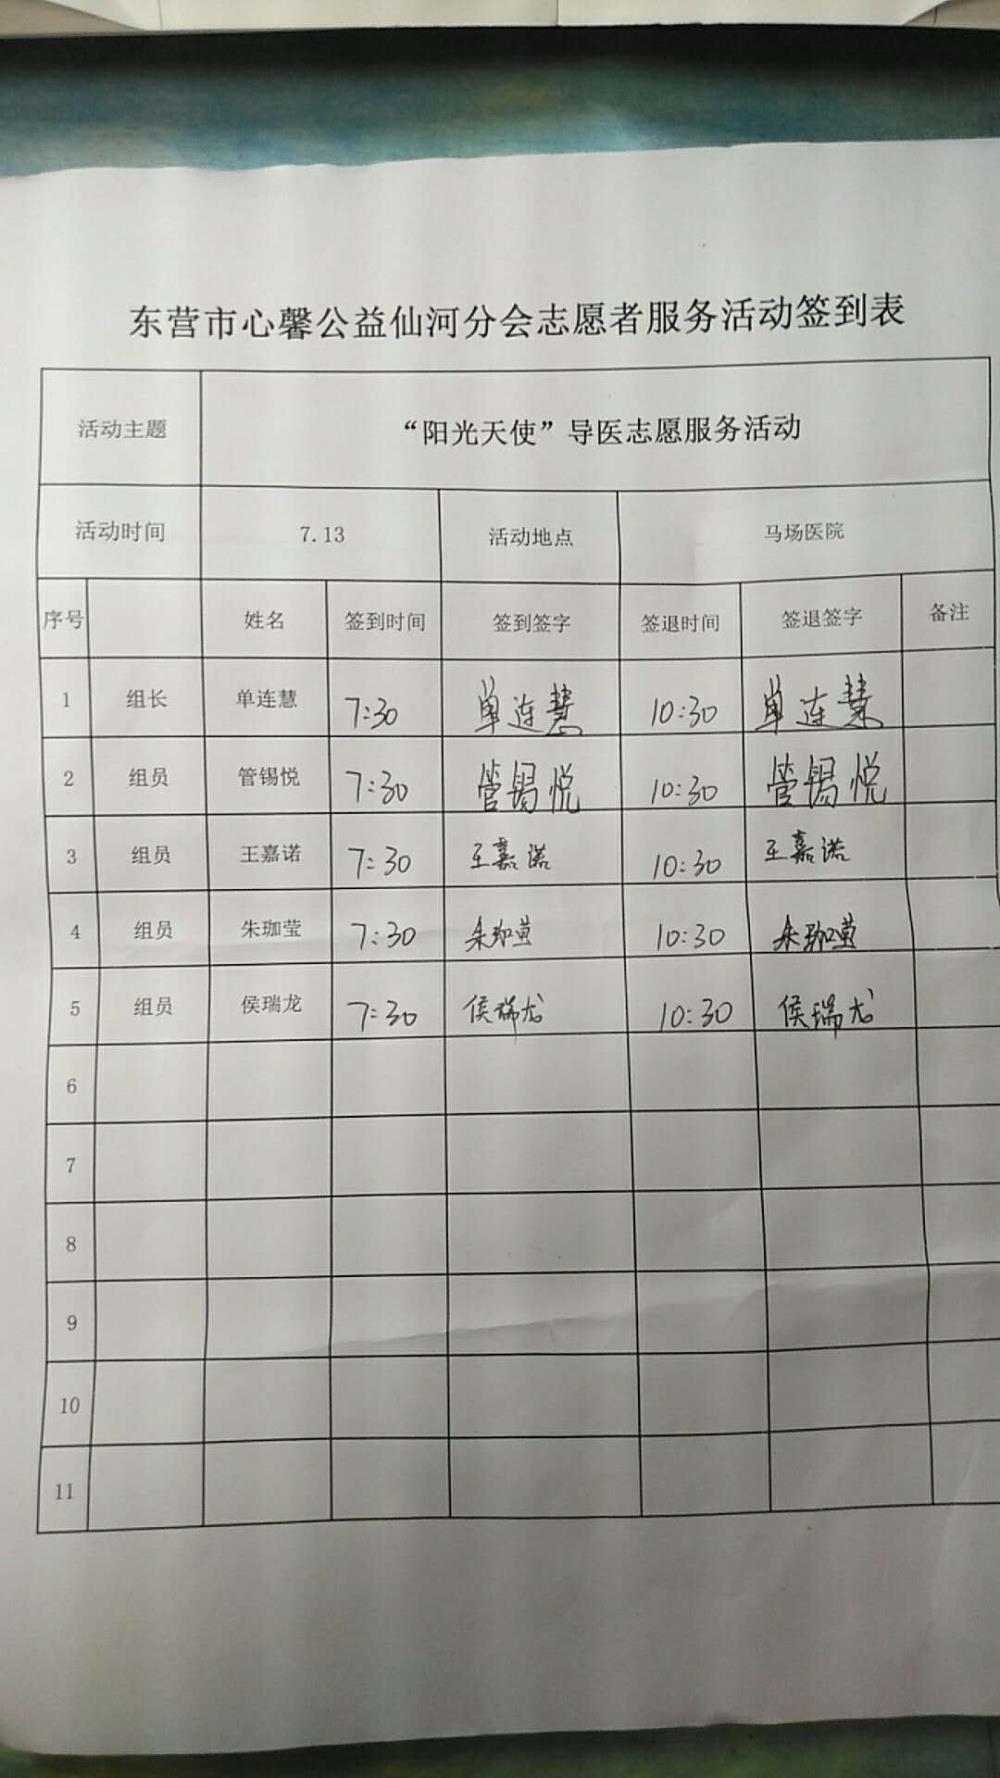 东营市心馨公益仙河分会志愿者服务活动签到表
活动主题 “阳光天使”导医志愿服务活动
活动时间 7.13 活动地点 马场医院
序号 姓名 签到时间 签到签字 签退时间 签退签字 备注
1 组长 单连慧 7:30 单连慧 10:30 单连慧
2 组员 管锡悦 7:30 管锡悦 10:30 管锡悦
3 组员 王嘉诺 7:30 王嘉诺 10:30 王嘉诺
4 组员 朱珈莹 7:30 朱珈莹 10:30 朱珈莹
5 组员 侯瑞龙 7:30 侯瑞龙 10:30 侯瑞龙
6
7
8
9
10
11